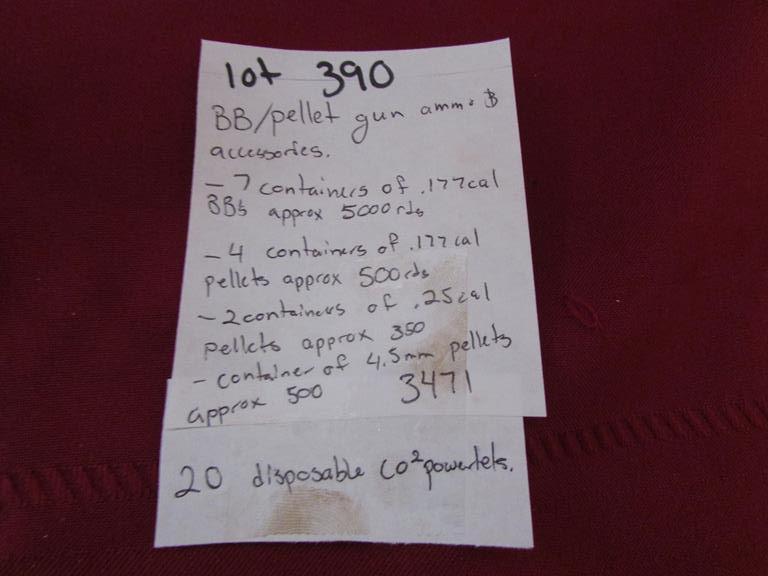 lot 390
BB/pellet gun ammo &
accessories.
- 7 containers of .177cal
BBs approx 5000rds
- 4 containers of .177cal
pellets approx 500rds
- 2containers of .25cal
pellets approx 350
- container of 4.5mm pellets
approx 500 3471
20 disposable CO² powerlets.